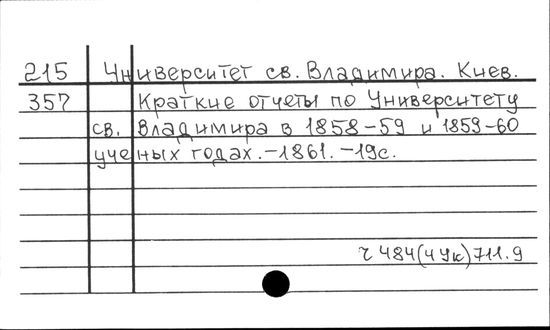 215 Университет св. Владимира. Киев.
357 Краткие отчеты по Университету
св. Владимира в 1858-59 и 1859-60
ученых годах.-1861.-19с.
ч 484(4Ук)711.9